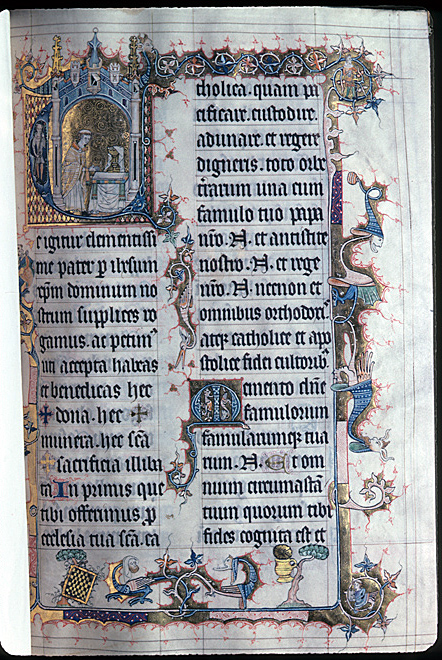 Te igitur clementissi
me pater p̄ ihesum
xp̄m dominum no
strum supplices ro
gamus. ac petimꝰ
uti accepta habeas
et benedicas hec
✠ dona. hec ✠
munera. hec sc̄a
✠ sacrificia illiba
ta In primis que
tibi offerimus p̄
ecclesia tua sc̄a. ca
tholica. quam pa
cificare. custodire.
adunare. et regere
digneris. toto orbe
t̄rarum una cum
famulo tuo papa
nr̄o .N. et antistite
nostro .N. et rege
nr̄o .N. necnon et
omnibus orthodoxꝭ
atqꝫ catholice et apo
stolice fidei cultoribꝰ
Memento dn̄e
famulorum
famularumqꝫ tua
rum .N. Et om
nium circumstan̄
tium quorum tibi
fides cognita est et